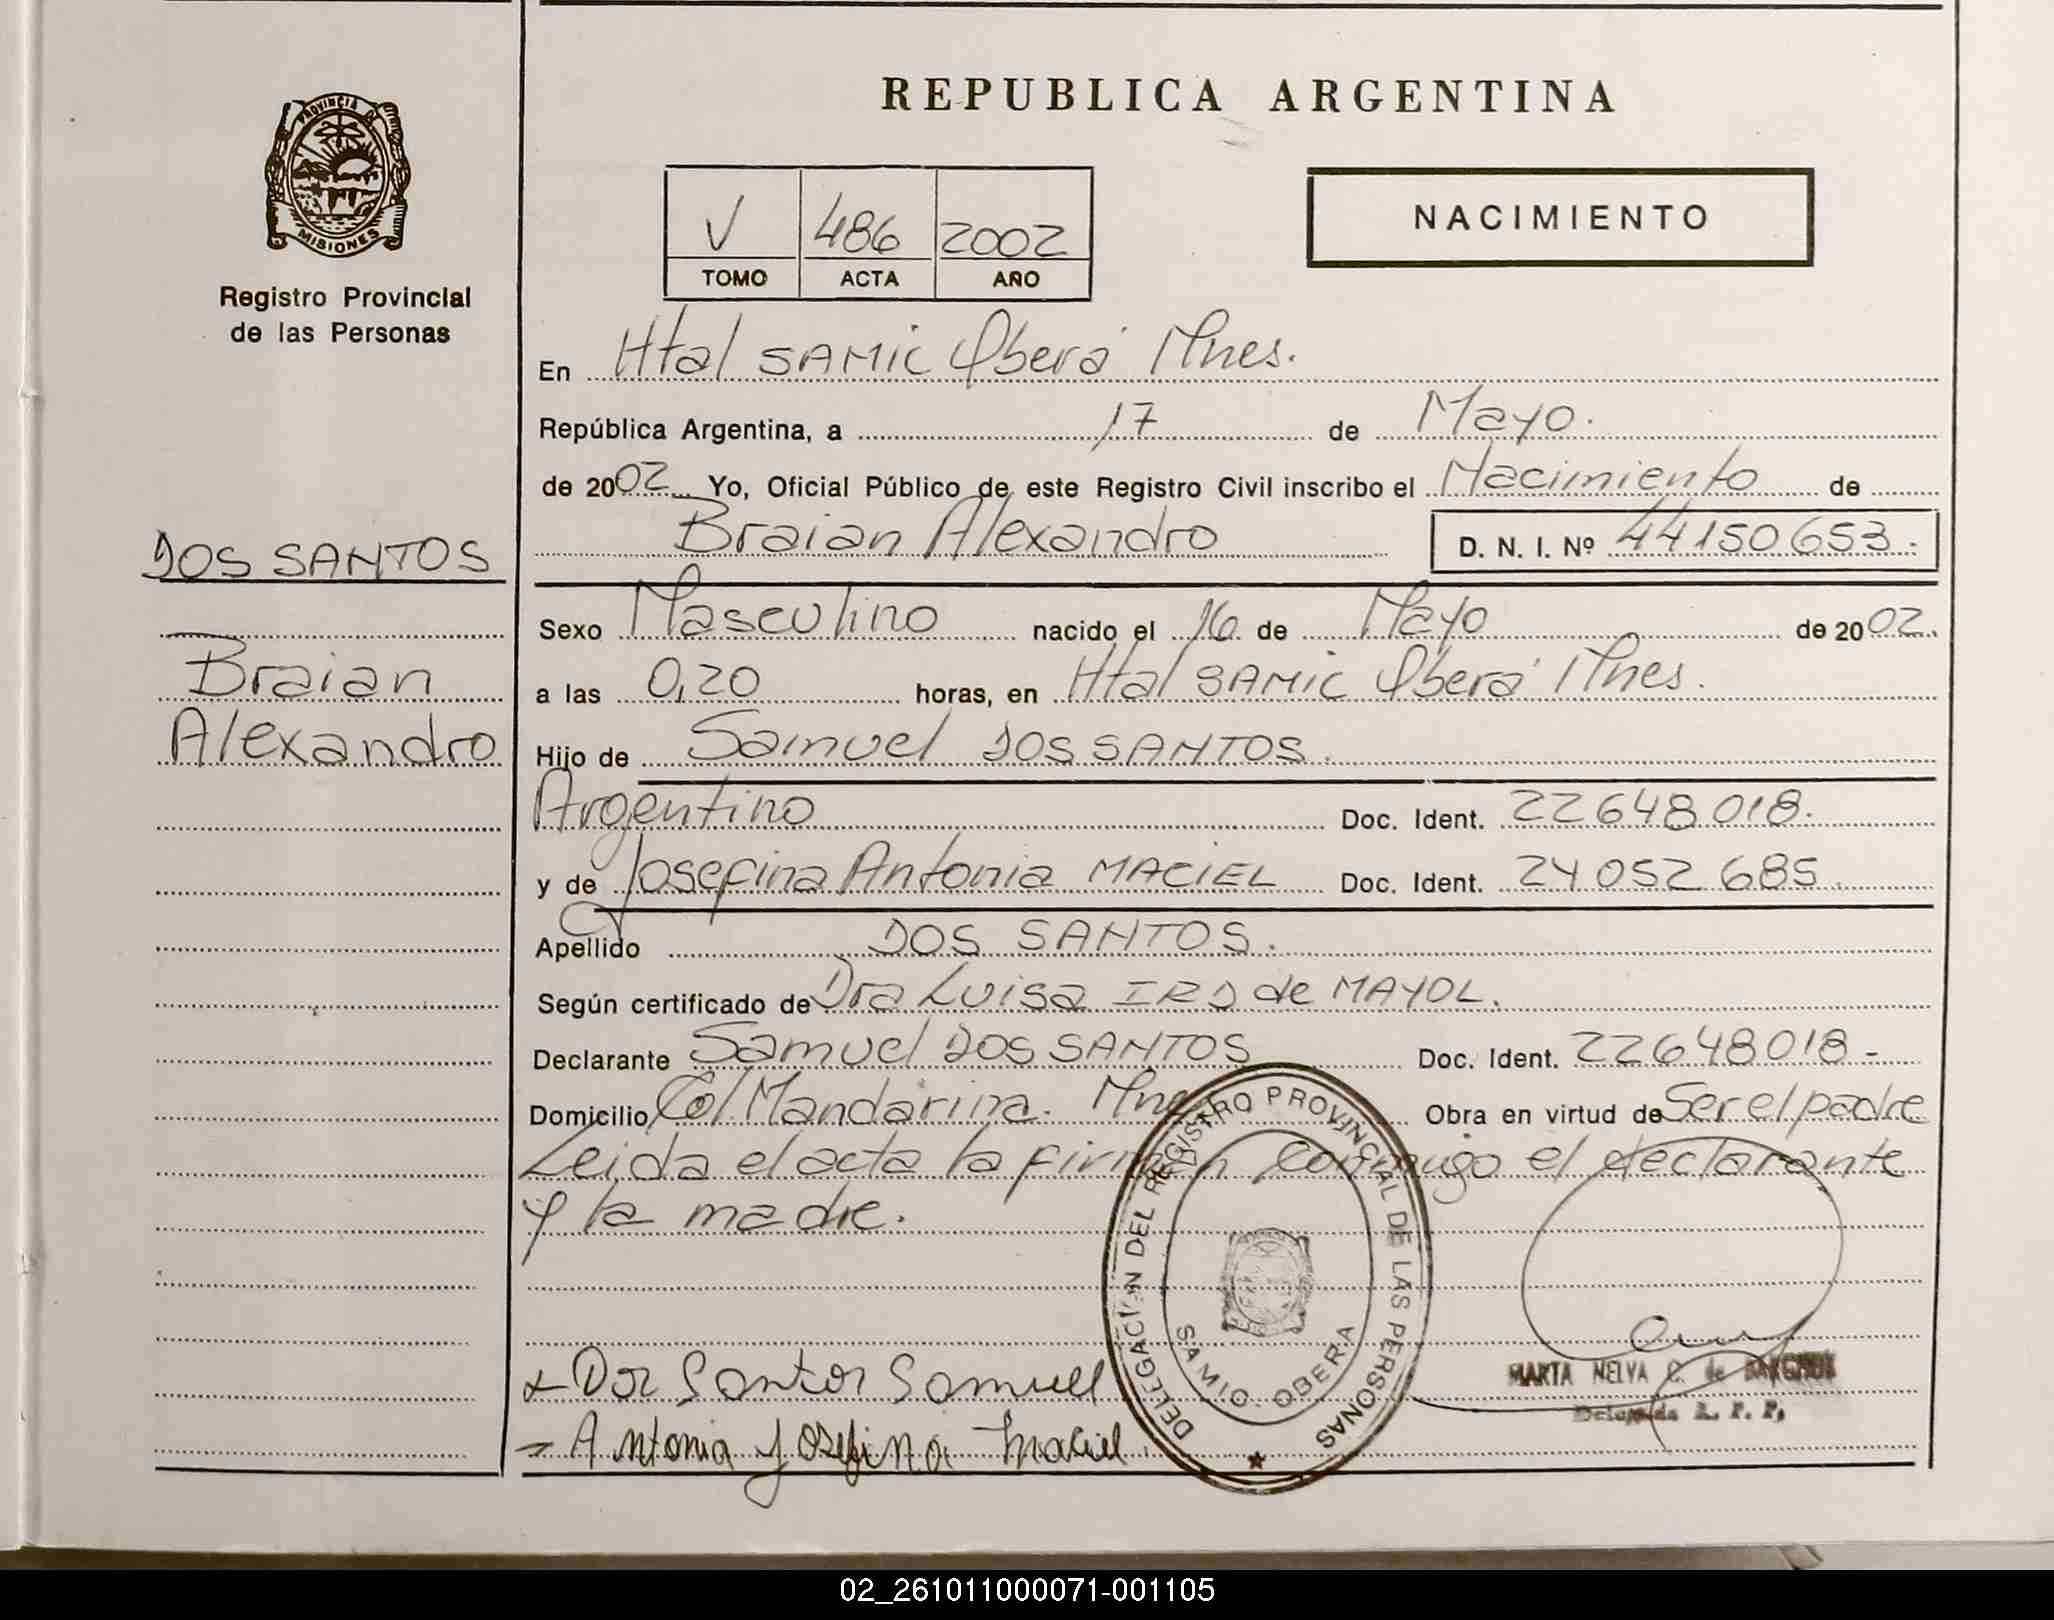 REPUBLICA ARGENTINA
PROVINCIA DE
MISIONES
Registro Provincial
de las Personas
V 486 2002
TOMO ACTA AÑO
NACIMIENTO
En Htal SAMIC Oberá Mnes.
República Argentina, a 17 de Mayo.
de 2002 Yo, Oficial Público de este Registro Civil inscribo el Nacimiento de
Braian Alexandro D. N. I. Nº 44150653.
DOS SANTOS
Braian
Alexandro
Sexo Masculino nacido el 16 de Mayo de 2002.
a las 0,20 horas, en Htal SAMIC Oberá Mnes.
Hijo de Samuel DOS SANTOS.
Argentino Doc. Ident. 22648018.
y de Josefina Antonia MACIEL Doc. Ident. 24052685.
Apellido DOS SANTOS.
Según certificado de Dra Luisa IRD de MAYOL.
Declarante Samuel DOS SANTOS Doc. Ident. 22648018-
Domicilio Col. Mandarina. Mnes Obra en virtud de Ser el padre
Leida el acta la firman conmigo el declarante
y la madre.
DELEGACION DEL REGISTRO PROVINCIAL DE LAS PERSONAS
SAMIC. OBERA
Dos Santos Samuel
Antonia Josefina Maciel
MARTA NELVA C. de
Delegada R. P. P.
02_261011000071-001105